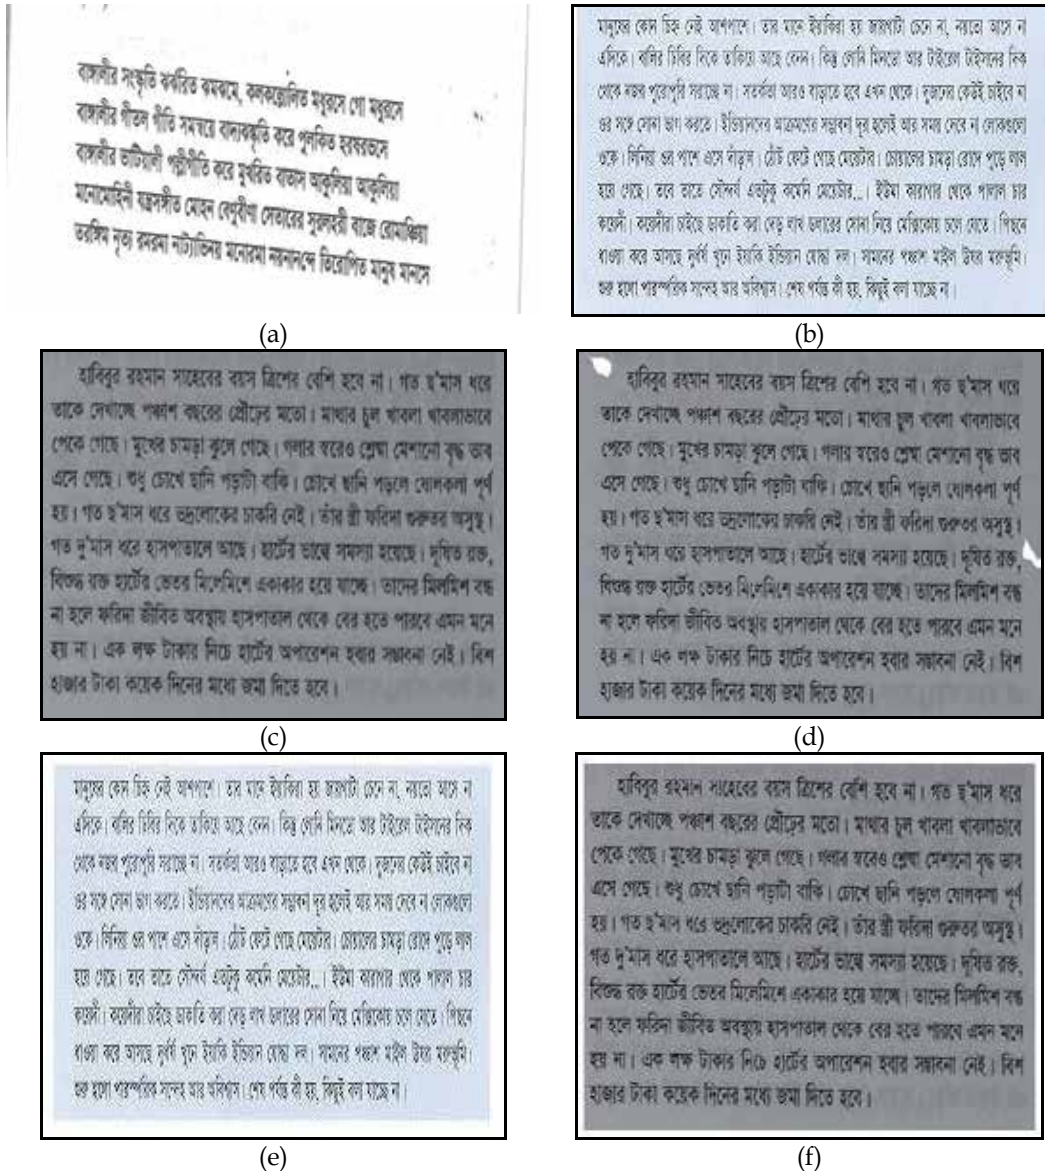 বাঙ্গালীর সংস্কৃতি ঝংকরিত ঝমকমে, কলকল্লোলিত মধুরসে গো মধুরসে
বাঙ্গালীর গীতল গীতি সমন্বয়ে বাদ্যঝঙ্কৃতি করে পুলকিত হরষরভসে
বাঙ্গালীর ভাটিয়ালী পল্লীগীতি করে মুখরিত বাতাস আকুলিয়া আকুলিয়া
মনোমোহিনী যন্ত্রসঙ্গীত মোহন বেণুবীণা সেতারের সুরলহরী বাজে রোমাঞ্চিয়া
তরঙ্গিম নৃত্য রমরমা নাট্যাভিনয় মনোরমা নয়নানন্দে তিরোপিত মানুষ মানসে
(a)
মানুষের কোন চিহ্ন নেই আশপাশে। তার মানে ইয়াকিরা হয় জায়গাটা চেনে না, নয়তো আসে না
এদিকে। বালির ঢিবির দিকে তাকিয়ে আছে বেনন। কিন্তু লোনি মিনতো আর টাইরেল টাইসনের দিক
থেকে নজর পুরোপুরি সরাচ্ছে না। সতর্কতা আরও বাড়াতে হবে এখন থেকে। দুজনের কেউই চাইবে না
ওর সঙ্গে সোনা ভাগ করতে। ইন্ডিয়ানদের আক্রমণের সম্ভাবনা দূর হলেই আর সময় দেবে না লোকগুলো
ওকে। লিনিয়া ওর পাশে এসে দাঁড়াল। ঠোঁট ফেটে গেছে মেয়েটার। চোয়ালের চামড়া রোদে পুড়ে লাল
হয়ে গেছে। তবে তাতে সৌন্দর্য এতটুকু কমেনি মেয়েটার...। ইউমা কারাগার থেকে পালাল চার
কয়েদী। কয়েদীরা চাইছে ডাকাতি করা দেড় লাখ ডলারের সোনা নিয়ে মেক্সিকোয় চলে যেতে। পিছনে
ধাওয়া করে আসছে দুর্ধর্ষ খুনে ইয়াকি ইন্ডিয়ান যোদ্ধা দল। সামনের পঞ্চাশ মাইল ঊষর মরুভূমি।
শুরু হলো পারস্পরিক সন্দেহ আর অবিশ্বাস। শেষ পর্যন্ত কী হয়, কিছুই বলা যাচ্ছে না।
(b)
হাবিবুর রহমান সাহেবের বয়স ত্রিশের বেশি হবে না। গত ছ'মাস ধরে
তাকে দেখাচ্ছে পঞ্চাশ বছরের প্রৌঢ়ের মতো। মাথার চুল খাবলা খাবলাভাবে
পেকে গেছে। মুখের চামড়া ঝুলে গেছে। গলার স্বরেও শ্লেষ্মা মেশানো বৃদ্ধ ভাব
এসে গেছে। শুধু চোখে ছানি পড়াটা বাকি। চোখে ছানি পড়লে ষোলকলা পূর্ণ
হয়। গত ছ'মাস ধরে ভদ্রলোকের চাকরি নেই। তাঁর স্ত্রী ফরিদা গুরুতর অসুস্থ।
গত দু'মাস ধরে হাসপাতালে আছে। হার্টের ভাল্বে সমস্যা হয়েছে। দূষিত রক্ত,
বিশুদ্ধ রক্ত হার্টের ভেতর মিলেমিশে একাকার হয়ে যাচ্ছে। তাদের মিলমিশ বন্ধ
না হলে ফরিদা জীবিত অবস্থায় হাসপাতাল থেকে বের হতে পারবে এমন মনে
হয় না। এক লক্ষ টাকার নিচে হার্টের অপারেশন হবার সম্ভাবনা নেই। বিশ
হাজার টাকা কয়েক দিনের মধ্যে জমা দিতে হবে।
(c)
হাবিবুর রহমান সাহেবের বয়স ত্রিশের বেশি হবে না। গত ছ'মাস ধরে
তাকে দেখাচ্ছে পঞ্চাশ বছরের প্রৌঢ়ের মতো। মাথার চুল খাবলা খাবলাভাবে
পেকে গেছে। মুখের চামড়া ঝুলে গেছে। গলার স্বরেও শ্লেষ্মা মেশানো বৃদ্ধ ভাব
এসে গেছে। শুধু চোখে ছানি পড়াটা বাকি। চোখে ছানি পড়লে ষোলকলা পূর্ণ
হয়। গত ছ'মাস ধরে ভদ্রলোকের চাকরি নেই। তাঁর স্ত্রী ফরিদা গুরুতর অসুস্থ।
গত দু'মাস ধরে হাসপাতালে আছে। হার্টের ভাল্বে সমস্যা হয়েছে। দূষিত রক্ত,
বিশুদ্ধ রক্ত হার্টের ভেতর মিলেমিশে একাকার হয়ে যাচ্ছে। তাদের মিলমিশ বন্ধ
না হলে ফরিদা জীবিত অবস্থায় হাসপাতাল থেকে বের হতে পারবে এমন মনে
হয় না। এক লক্ষ টাকার নিচে হার্টের অপারেশন হবার সম্ভাবনা নেই। বিশ
হাজার টাকা কয়েক দিনের মধ্যে জমা দিতে হবে।
(d)
মানুষের কোন চিহ্ন নেই আশপাশে। তার মানে ইয়াকিরা হয় জায়গাটা চেনে না, নয়তো আসে না
এদিকে। বালির ঢিবির দিকে তাকিয়ে আছে বেনন। কিন্তু লোনি মিনতো আর টাইরেল টাইসনের দিক
থেকে নজর পুরোপুরি সরাচ্ছে না। সতর্কতা আরও বাড়াতে হবে এখন থেকে। দুজনের কেউই চাইবে না
ওর সঙ্গে সোনা ভাগ করতে। ইন্ডিয়ানদের আক্রমণের সম্ভাবনা দূর হলেই আর সময় দেবে না লোকগুলো
ওকে। লিনিয়া ওর পাশে এসে দাঁড়াল। ঠোঁট ফেটে গেছে মেয়েটার। চোয়ালের চামড়া রোদে পুড়ে লাল
হয়ে গেছে। তবে তাতে সৌন্দর্য এতটুকু কমেনি মেয়েটার...। ইউমা কারাগার থেকে পালাল চার
কয়েদী। কয়েদীরা চাইছে ডাকাতি করা দেড় লাখ ডলারের সোনা নিয়ে মেক্সিকোয় চলে যেতে। পিছনে
ধাওয়া করে আসছে দুর্ধর্ষ খুনে ইয়াকি ইন্ডিয়ান যোদ্ধা দল। সামনের পঞ্চাশ মাইল ঊষর মরুভূমি।
শুরু হলো পারস্পরিক সন্দেহ আর অবিশ্বাস। শেষ পর্যন্ত কী হয়, কিছুই বলা যাচ্ছে না।
(e)
হাবিবুর রহমান সাহেবের বয়স ত্রিশের বেশি হবে না। গত ছ'মাস ধরে
তাকে দেখাচ্ছে পঞ্চাশ বছরের প্রৌঢ়ের মতো। মাথার চুল খাবলা খাবলাভাবে
পেকে গেছে। মুখের চামড়া ঝুলে গেছে। গলার স্বরেও শ্লেষ্মা মেশানো বৃদ্ধ ভাব
এসে গেছে। শুধু চোখে ছানি পড়াটা বাকি। চোখে ছানি পড়লে ষোলকলা পূর্ণ
হয়। গত ছ'মাস ধরে ভদ্রলোকের চাকরি নেই। তাঁর স্ত্রী ফরিদা গুরুতর অসুস্থ।
গত দু'মাস ধরে হাসপাতালে আছে। হার্টের ভাল্বে সমস্যা হয়েছে। দূষিত রক্ত,
বিশুদ্ধ রক্ত হার্টের ভেতর মিলেমিশে একাকার হয়ে যাচ্ছে। তাদের মিলমিশ বন্ধ
না হলে ফরিদা জীবিত অবস্থায় হাসপাতাল থেকে বের হতে পারবে এমন মনে
হয় না। এক লক্ষ টাকার নিচে হার্টের অপারেশন হবার সম্ভাবনা নেই। বিশ
হাজার টাকা কয়েক দিনের মধ্যে জমা দিতে হবে।
(f)